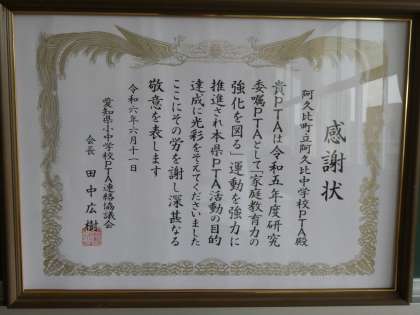 感謝状
阿久比町立阿久比中学校PTA殿
貴PTAは令和五年度研究
委嘱PTAとして「家庭教育力の
強化を図る」運動を強力に
推進され本県PTA活動の目的
達成に光彩をそえてくださいました
ここにその労を謝し深甚なる
敬意を表します
令和六年六月十一日
愛知県小中学校PTA連絡協議会
会長 田中広樹